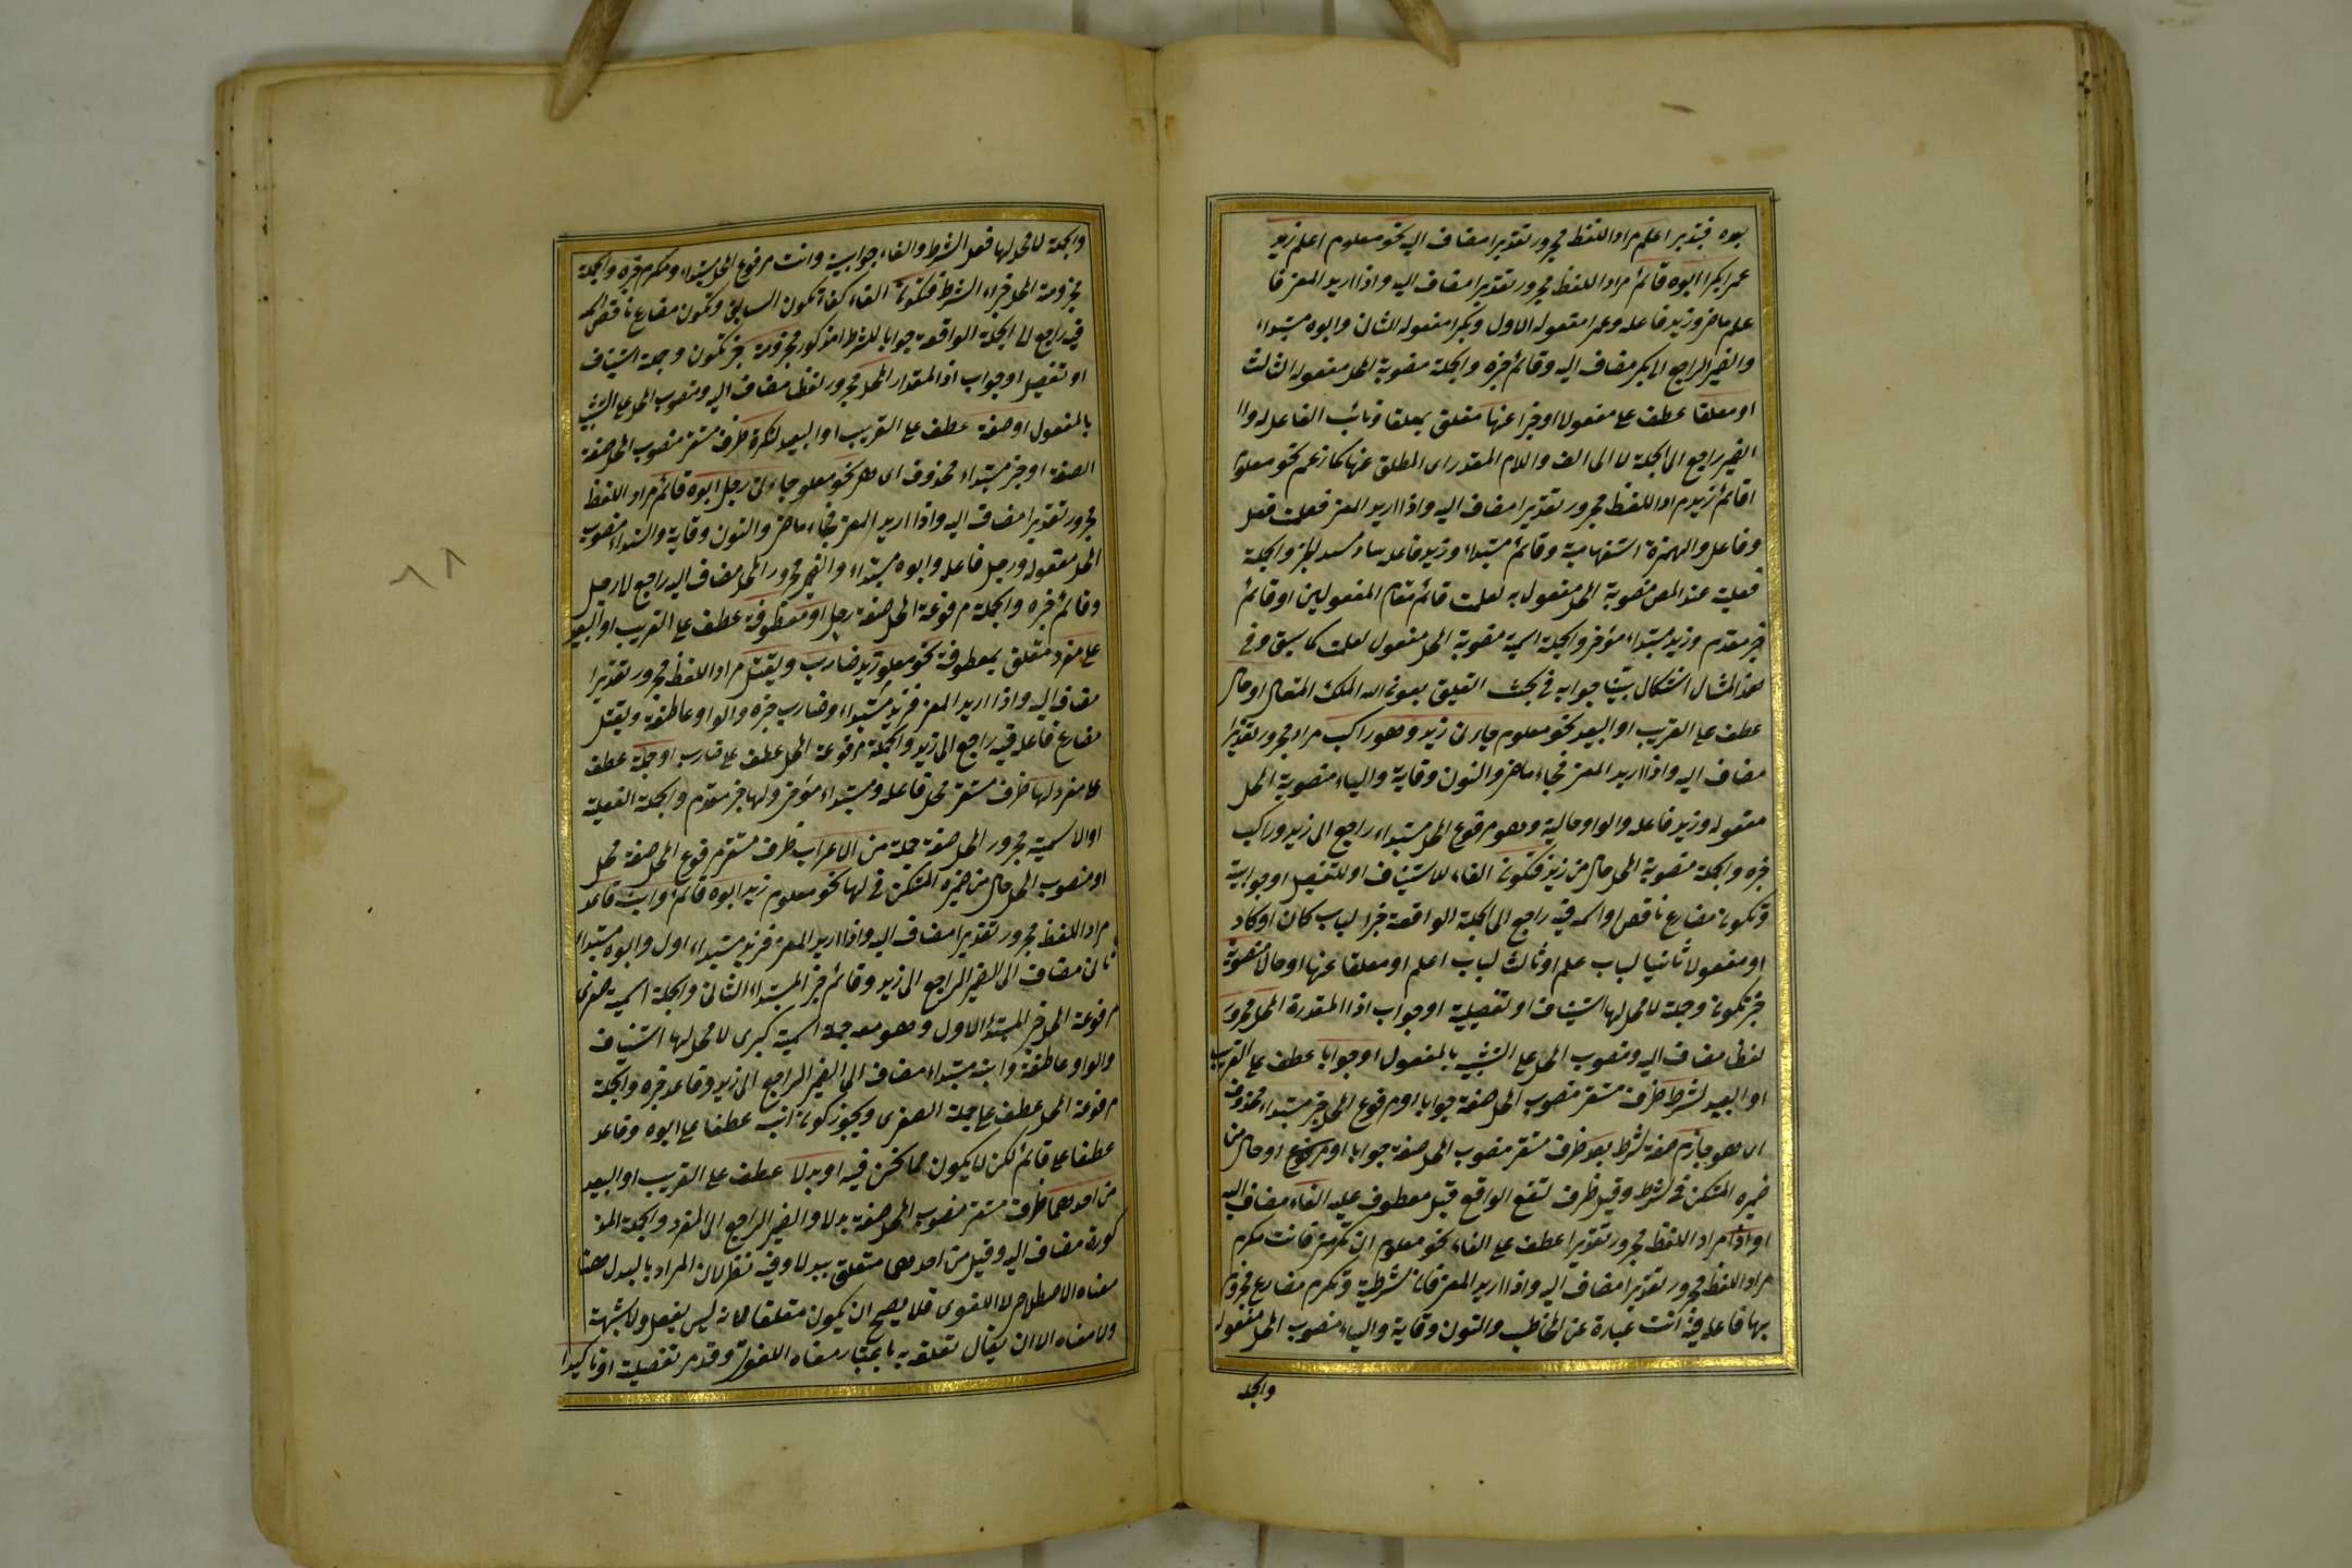 بوه فتدبر اعلم مراد اللفظ مجرور تقديرا مضاف اليه نحو معلوم اعلم زيد
عمرا بكرا ابوه قائم مراد اللفظ مجرور تقديرا مضاف اليه واذا اريد المعنى فا
علم ماض وزيد فاعله وعمرا مفعوله الاول وبكرا مفعوله الثانى وابوه مبتداء
والضمير الراجع الى بكر مضاف اليه وقائم خبره والجملة منصوبة المحل مفعوله الثالث
او معلقا عطف على مفعولا او خبرا عنها متعلق بمعلقا ونائب الفاعل له وا
الضمير راجع الى الجملة لا الى الف واللام المقدر اى المطلق عنها كما زعم نحو معلوم
اقائم زيد مراد اللفظ مجرور تقديرا مضاف اليه واذا اريد المعنى فعلمت فعل
وفاعل والهمزة استفهامية وقائم مبتداء وزيد فاعله ساد مسد الخبر والجملة
فعلية عند المص منصوبة المحل مفعول به لعلمت قائم مقام المفعولين او قائم
خبر مقدم وزيد مبتداء مؤخر والجملة اسمية منصوبة المحل مفعول لعلمت كما سبق وفى
هذا المثال اشكال بينا جوابه فى بحث التعليق بعون الله الملك المتعال او حال
عطف على القريب او البعيد نحو معلوم جاءنى زيد وهو راكب مراد مجرور تقديرا
مضاف اليه واذا اريد المعنى فجاء ماض والنون وقاية والياء منصوبة المحل
مفعوله وزيد فاعله والواو حالية وهو مرفوع المحل مبتداء راجع الى زيد وراكب
خبره والجملة منصوبة المحل حال من زيد فتكون الفاء للاستيناف او للتفصيل او جوابية
وتكون مضارع ناقص او اسمه فيه راجع الى الجملة الواقعة خبرا لباب كان او كاد
او مفعولا ثانيا لباب علم او ثالث لباب اعلم او معلقا عنها او حالا منصوبة
خبر تكون وجملة لا محل لها استيناف او تفصيلية او جواب اذا المقدرة المحل مجرور
لفظ مضاف اليه ومنصوب المحل على التشبيه بالمفعول او جوابا عطف على القريب
او البعيد لشرط ظرف مستقر منصوب المحل صفة جوابا او مرفوع المحل خبر مبتداء محذوف
اى هو جازم صفة لشرط بعد ظرف مستقر منصوب المحل صفة جوابا او مرفوع او حال من
ضميره المستكن فى لشرط وقيل ظرف لتقع الواقع قبل معطوف عليه الفاء مضاف اليه
او اذا مراد اللفظ مجرور تقديرا عطف على الفاء نحو معلوم ان تكرمنى فانت مكرم
مراد اللفظ مجرور تقديرا مضاف اليه واذا اريد المعنى فان شرطية وتكرم مضارع مجزوم
بها فاعله فيه انت عبارة عن المخاطب والنون وقاية والياء منصوب المحل مفعوله
والجملة
والجملة لا محل لها فعل الشرط والفاء جوابية وانت مرفوع المحل مبتداء ومكرم خبره والجملة
مجزومة المحل جزاء الشرط فتكون الفاء كفاء تكون السابق وتكون مضارع ناقص اسمه
فيه راجع الى الجملة الواقعة جوابا للشرط المذكور مجزومة خبر تكون وجملة استيناف
او تفصيل او جواب اذا المقدار المحل مجرور لفظا مضاف اليه ومنصوب المحل على التشبيه
بالمفعول او صفة عطف على القريب او البعيد لنكرة ظرف مستقر منصوب المحل صفة
الصفة او خبر مبتداء محذوف اى هى نحو معلوم جاءنى رجل ابوه قائم مراد اللفظ
مجرور تقديرا مضاف اليه واذا اريد المعنى فجاء ماض والنون وقاية والياء منصوب
المحل مفعوله ورجل فاعله وابوه مبتداء والضمير مجرور المحل مضاف اليه راجع الى رجل
وقائم خبره والجملة مرفوعة المحل صفة رجل او معطوفة عطف على القريب او البعيد
على مفرد متعلق بمعطوفة نحو معلوم زيد ضارب ويقتل مراد اللفظ مجرور تقديرا
مضاف اليه واذا اريد المعنى فزيد مبتداء وضارب خبره والواو عاطفة ويقتل
مضارع فاعله فيه راجع الى زيد والجملة مرفوعة المحل عطف على ضارب او جملة عطف
على مفرد لها ظرف مستقر محل فاعله ومبتداء مؤخر ولها خبر مقدم والجملة الفعلية
او الاسمية مجرور المحل صفة جملة من الاعراب ظرف مستقر مرفوع المحل صفة محل
او منصوب المحل حال من ضميره المستكن فى لها نحو معلوم زيد ابوه قائم وابنه قاعد
مراد اللفظ مجرور تقديرا مضاف اليه واذا اريد المعنى فزيد مبتداء اول وابوه مبتداء
ثانى مضاف الى الضمير الراجع الى زيد وقائم خبر المبتداء الثانى والجملة اسمية صغرى
مرفوعة المحل خبر المبتداء الاول وهو معه جملة اسمية كبرى لا محل لها استيناف
والواو عاطفة وابنه مبتداء مضاف الى الضمير الراجع الى زيد وقاعد خبره والجملة
مرفوعة المحل عطف على جملة الصغرى ويجوز كون ابنه عطفا على ابوه وقاعد
عطفا على قائم لكن لا يكون مما نحن فيه او بدلا عطف على القريب او البعيد
من احدهما ظرف مستقر منصوب المحل صفة بدلا والضمير الراجع الى المفرد والجملة المذ
كورة مضاف اليه وقيل من احدهما متعلق ببدلا وفيه نظر لان المراد بالبدل هنا
معناه الاصطلاحى لا اللغوى فلا يصح ان يكون متعلقا لانه ليس بفعل ولا شبهة
ولا معناه الا ان يقال تعلقه به باعتبار معناه اللغوى وقد مر تفصيلة او تاكيدا
٨٨